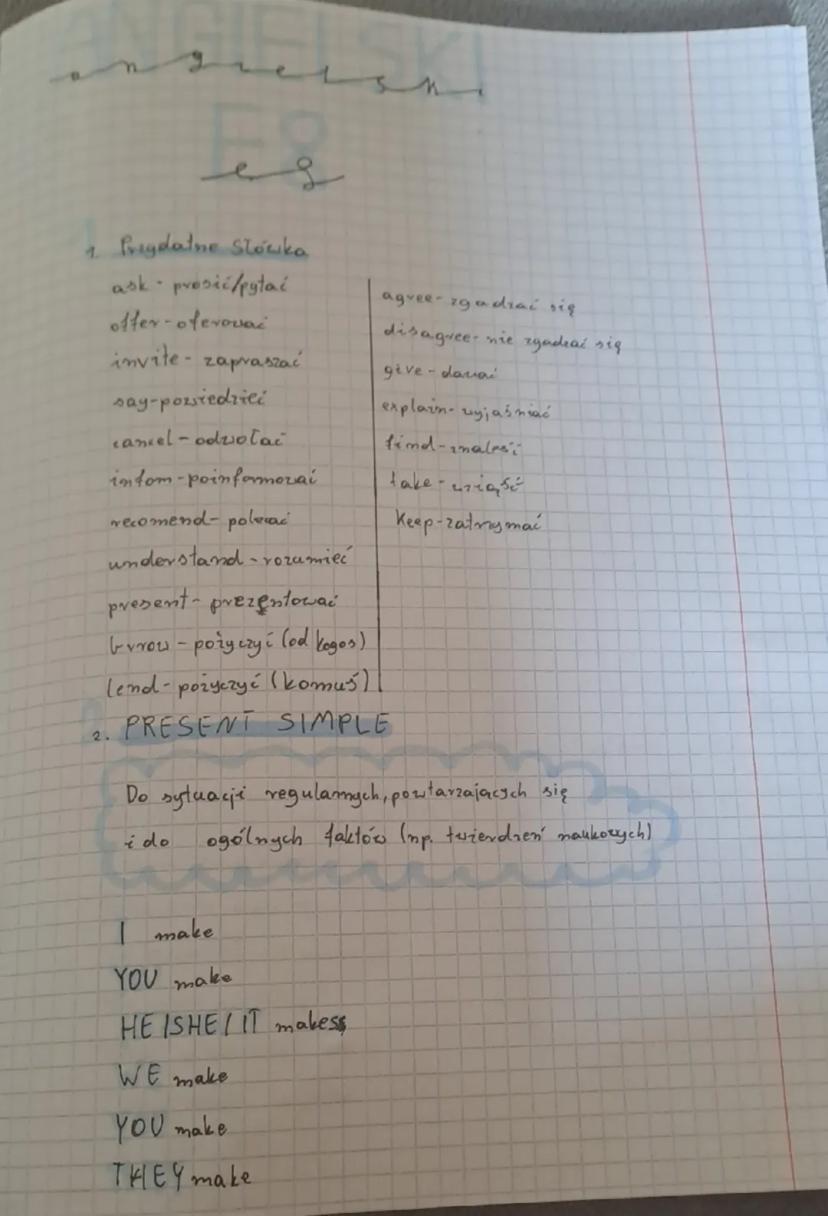 ANGIELSKI
angielski
E8
e8
1. Przydatne słówka
ask - prosić/pytać
offer - oferować
invite - zapraszać
say - powiedzieć
cancel - odwołać
infom - poinformować
recomend - polecać
understand - rozumieć
present - prezentować
borrow - pożyczyć (od kogoś)
lend - pożyczyć (komuś)
agree - zgadzać się
disagree - nie zgadzać się
give - dawać
explain - wyjaśniać
find - znaleść
take - wziąść
keep - zatrzymać
2. PRESENT SIMPLE
Do sytuacji regularnych, powtarzających się
i do ogólnych faktów (np. twierdzeń naukowych)
I make
YOU make
HE/SHE/IT makes
WE make
YOU make
THEY make